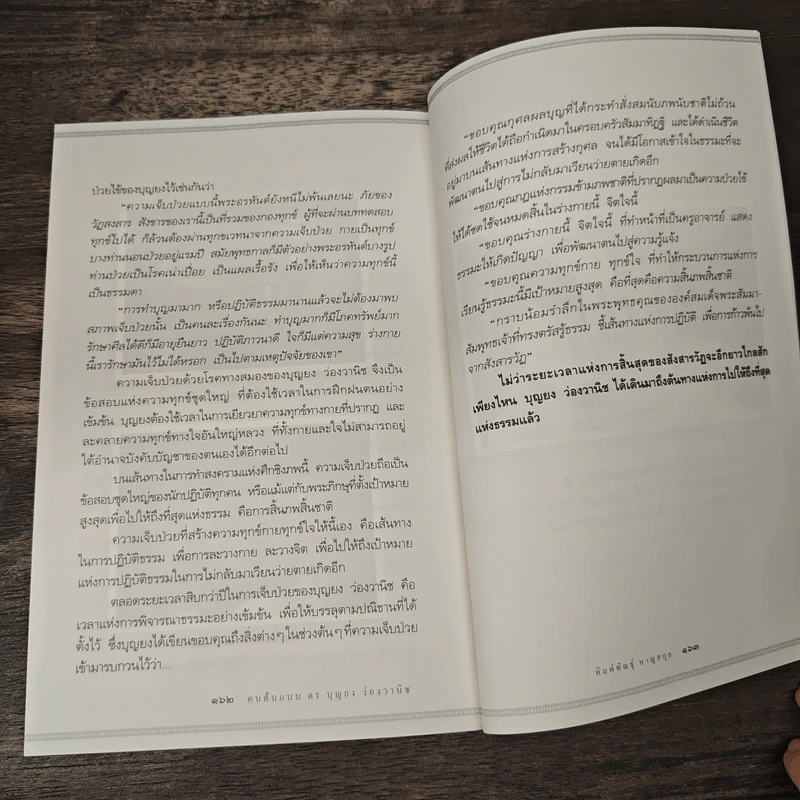 ป่วยไข้ของบุญยงไว้เช่นกันว่า
“ความเจ็บป่วยแบบนี้พระอรหันต์ยังหนีไม่พ้นเลยนะ ภัยของ
วัฏสงสาร สังขารของเรานี้เป็นที่รวมของกองทุกข์ ผู้ที่จะผ่านบททดสอบ
ทุกข์ไปได้ ก็ล้วนต้องผ่านทุกขเวทนาจากความเจ็บป่วย กายเป็นทุกข์
บางท่านนอนป่วยอยู่แรมปี สมัยพุทธกาลก็มีตัวอย่างพระอรหันต์บางรูป
ท่านป่วยเป็นโรคเน่าเปื่อย เป็นแผลเรื้อรัง เพื่อให้เห็นว่าความทุกข์นี้
เป็นธรรมดา
“การทำบุญมามาก หรือปฏิบัติธรรมมานานแล้วจะไม่ต้องมาพบ
สภาพเจ็บป่วยนั้น เป็นคนละเรื่องกันนะ ทำบุญมากก็มีโภคทรัพย์มาก
รักษาศีลได้ดีก็มีอายุยืนยาว ปฏิบัติภาวนาดี ใจก็มีแต่ความสุข ร่างกาย
นี้เรารักษามันไว้ไม่ได้หรอก เป็นไปตามเหตุปัจจัยของเขา”
ความเจ็บป่วยด้วยโรคทางสมองของบุญยง ว่องวานิช จึงเป็น
ข้อสอบแห่งความทุกข์ชุดใหญ่ ที่ต้องใช้เวลาในการฝึกฝนตนอย่าง
เข้มข้น บุญยงต้องใช้เวลาในการเยียวยาความทุกข์ทางกายที่ปรากฏ และ
ละคลายความทุกข์ทางใจอันใหญ่หลวง ที่ทั้งกายและใจไม่สามารถอยู่
ใต้อำนาจบังคับบัญชาของตนเองได้อีกต่อไป
บนเส้นทางในการทำสงครามแห่งศึกชิงภพนี้ ความเจ็บป่วยถือเป็น
ข้อสอบชุดใหญ่ของนักปฏิบัติทุกคน หรือแม้แต่กับพระภิกษุที่ตั้งเป้าหมาย
สูงสุดเพื่อไปให้ถึงที่สุดแห่งธรรม คือการสิ้นภพสิ้นชาติ
ความเจ็บป่วยที่สร้างความทุกข์กายทุกข์ใจให้นี้เอง คือเส้นทาง
ในการปฏิบัติธรรม เพื่อการละวางกาย ละวางจิต เพื่อไปให้ถึงเป้าหมาย
แห่งการปฏิบัติธรรมในการไม่กลับมาเวียนว่ายตายเกิดอีก
ตลอดระยะเวลาสิบกว่าปีในการเจ็บป่วยของบุญยง ว่องวานิช คือ
เวลาแห่งการพิจารณาธรรมะอย่างเข้มข้น เพื่อให้บรรลุตามปณิธานที่ได้
ตั้งไว้ ซึ่งบุญยงได้เขียนขอบคุณถึงสิ่งต่างๆ ในช่วงต้นๆ ที่ความเจ็บป่วย
เข้ามารบกวนไว้ว่า...
๑๖๒ คนต้นแบบ ดร.บุญยง ว่องวานิช
“ขอบคุณกุศลผลบุญที่ได้กระทำสั่งสมนับภพนับชาติไม่ถ้วน
ที่ส่งผลให้ชีวิตได้ถือกำเนิดมาในครอบครัวสัมมาทิฏฐิ และได้ดำเนินชีวิต
อยู่มาบนเส้นทางแห่งการสร้างกุศล จนได้มีโอกาสเข้าใจในธรรมะที่จะ
พัฒนาตนไปสู่การไม่กลับมาเวียนว่ายตายเกิดอีก
“ขอบคุณกฎแห่งกรรมข้ามภพชาติที่ปรากฏผลมาเป็นความป่วยไข้
ให้ได้ชดใช้จนหมดสิ้นในร่างกายนี้ จิตใจนี้
“ขอบคุณร่างกายนี้ จิตใจนี้ ที่ทำหน้าที่เป็นครูอาจารย์ แสดง
ธรรมะให้เกิดปัญญา เพื่อพัฒนาตนไปสู่ความรู้แจ้ง
“ขอบคุณความทุกข์กาย ทุกข์ใจ ที่ทำให้กระบวนการแห่งการ
เรียนรู้ธรรมะนี้มีเป้าหมายสูงสุด คือที่สุดคือความสิ้นภพสิ้นชาติ
“กราบน้อมรำลึกในพระพุทธคุณขององค์สมเด็จพระสัมมา-
สัมพุทธเจ้าที่ทรงตรัสรู้ธรรม ชี้เส้นทางแห่งการปฏิบัติ เพื่อการก้าวพ้นไป
จากสังสารวัฏ”
ไม่ว่าระยะเวลาแห่งการสิ้นสุดของสังสารวัฏจะอีกยาวไกลสัก
เพียงไหน บุญยง ว่องวานิช ได้เดินมาถึงต้นทางแห่งการไปให้ถึงที่สุด
แห่งธรรมแล้ว
พิมพ์พัฒน์ หาญสกุล ๑๖๓